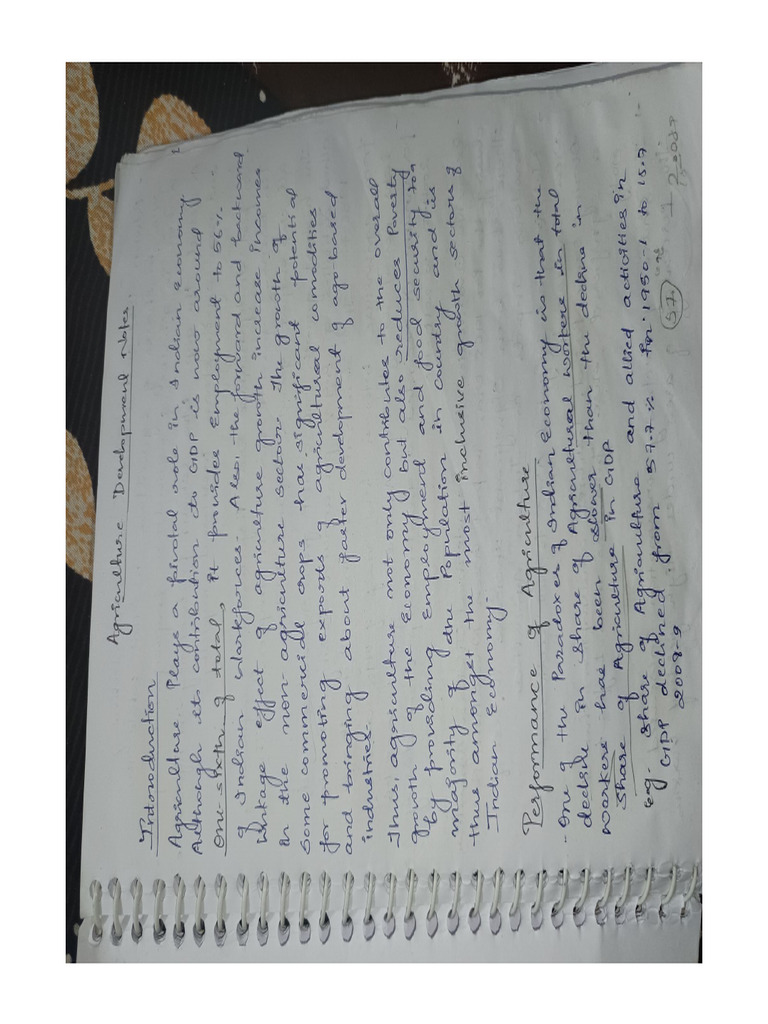 Agriculture Development Notes.
Introduction
Agriculture Plays a pivotal role in Indian economy.
Although its contribution to GDP is now around
one-sixth of total, it provides Employment to 56%
of Indian Workforces. Also, the forward and backward
linkage effect of agriculture growth increase incomes
in the non-agriculture sector. The growth of
some commercial crops has significant potential
for promoting exports of agricultural comodities
and bringing about faster development of ago-based
industries.
Thus, agriculture not only contributes to the overall
growth of the Economy but also reduces Poverty
by providing Employment and food security to
majority of the Population in country and is
thus amongst the most inclusive growth sectors of
Indian Economy.
Performance of Agriculture
- One of the Paradoxes of Indian Economy is that the
decline in share of Agricultural workers in total
workers has been slower than the decline in
Share of Agriculture in GDP
eg. Share of Agriculture and allied activities in
GDP declined from 57.7% in 1950-1 to 15.7
2008-9
57.